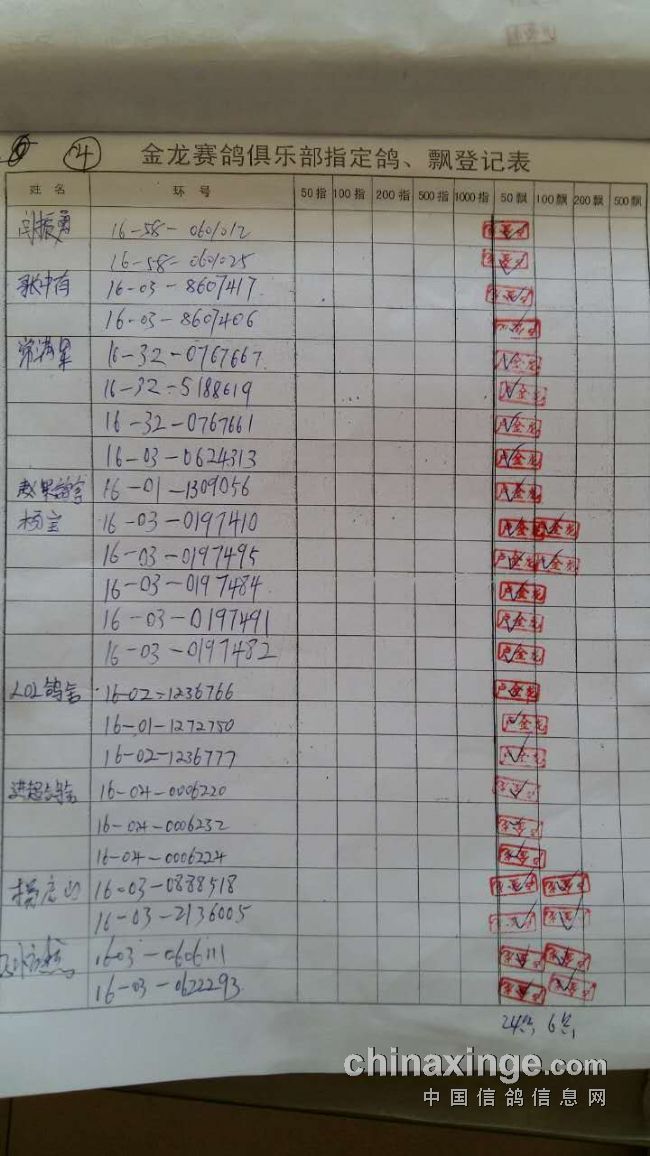 4 金龙赛鸽俱乐部指定鸽、飘登记表
姓名 环号 50指 100指 200指 500指 1000指 50飘 100飘 200飘 500飘
闫振勇 16-58-0601012
16-58-0601025
16-03-8607417
16-03-8607406
常满星 16-32-0767667
16-32-5188619
16-32-0767661 金龙
16-03-0624313 金龙
16-01-1309056 金龙
杨宝 16-03-0197410 金龙 金龙
16-03-0197495 金龙 金龙
16-03-0197484 金龙
16-03-0197491 金龙
16-03-0197482 金龙
LOL鸽舍 16-02-1236766 金龙
16-01-1272750 金龙
16-02-1236777 金龙
进超鸽舍 16-04-0006220
16-04-0006232
16-04-0006224
16-03-0888518
16-03-2136005
1603-0606111
16-03-0622293
24 6
chinaxinge.com
中国信鸽信息网